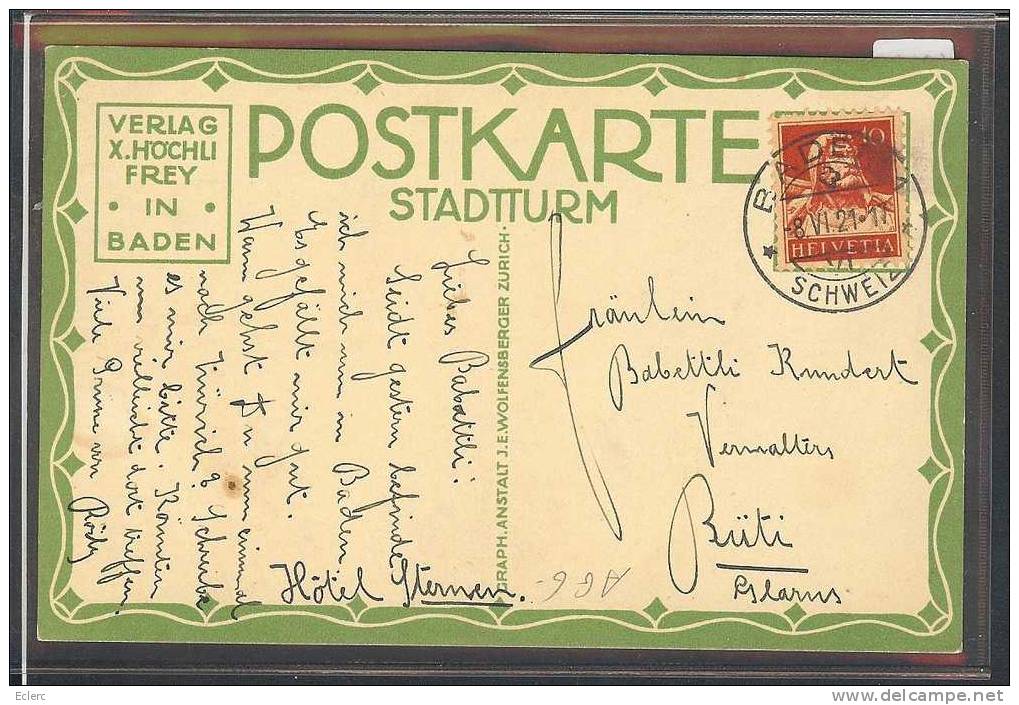 VERLAG
X. HÖCHLI
FREY
• IN •
BADEN
POSTKARTE
STADTTURM
10
HELVETIA
BADEN
-8.VI.21.-17
SCHWEIZ
Liebes Babettli!
Seit gestern befinde
ich mich nun in Baden
Es gefällt mir gut.
Wann gehst Du nun einmal
nach Zürich? Schreibe
es mir bitte. Könnten
uns vielleicht dort treffen.
Viele Grüsse von
Hôtel Sternen.
GRAPH. ANSTALT J.E. WOLFENSBERGER ZÜRICH.
Fräulein
Babettli Kundert
Verwalters
Rüti
Glarus
AG6-
Eclerc
www.delcampe.net